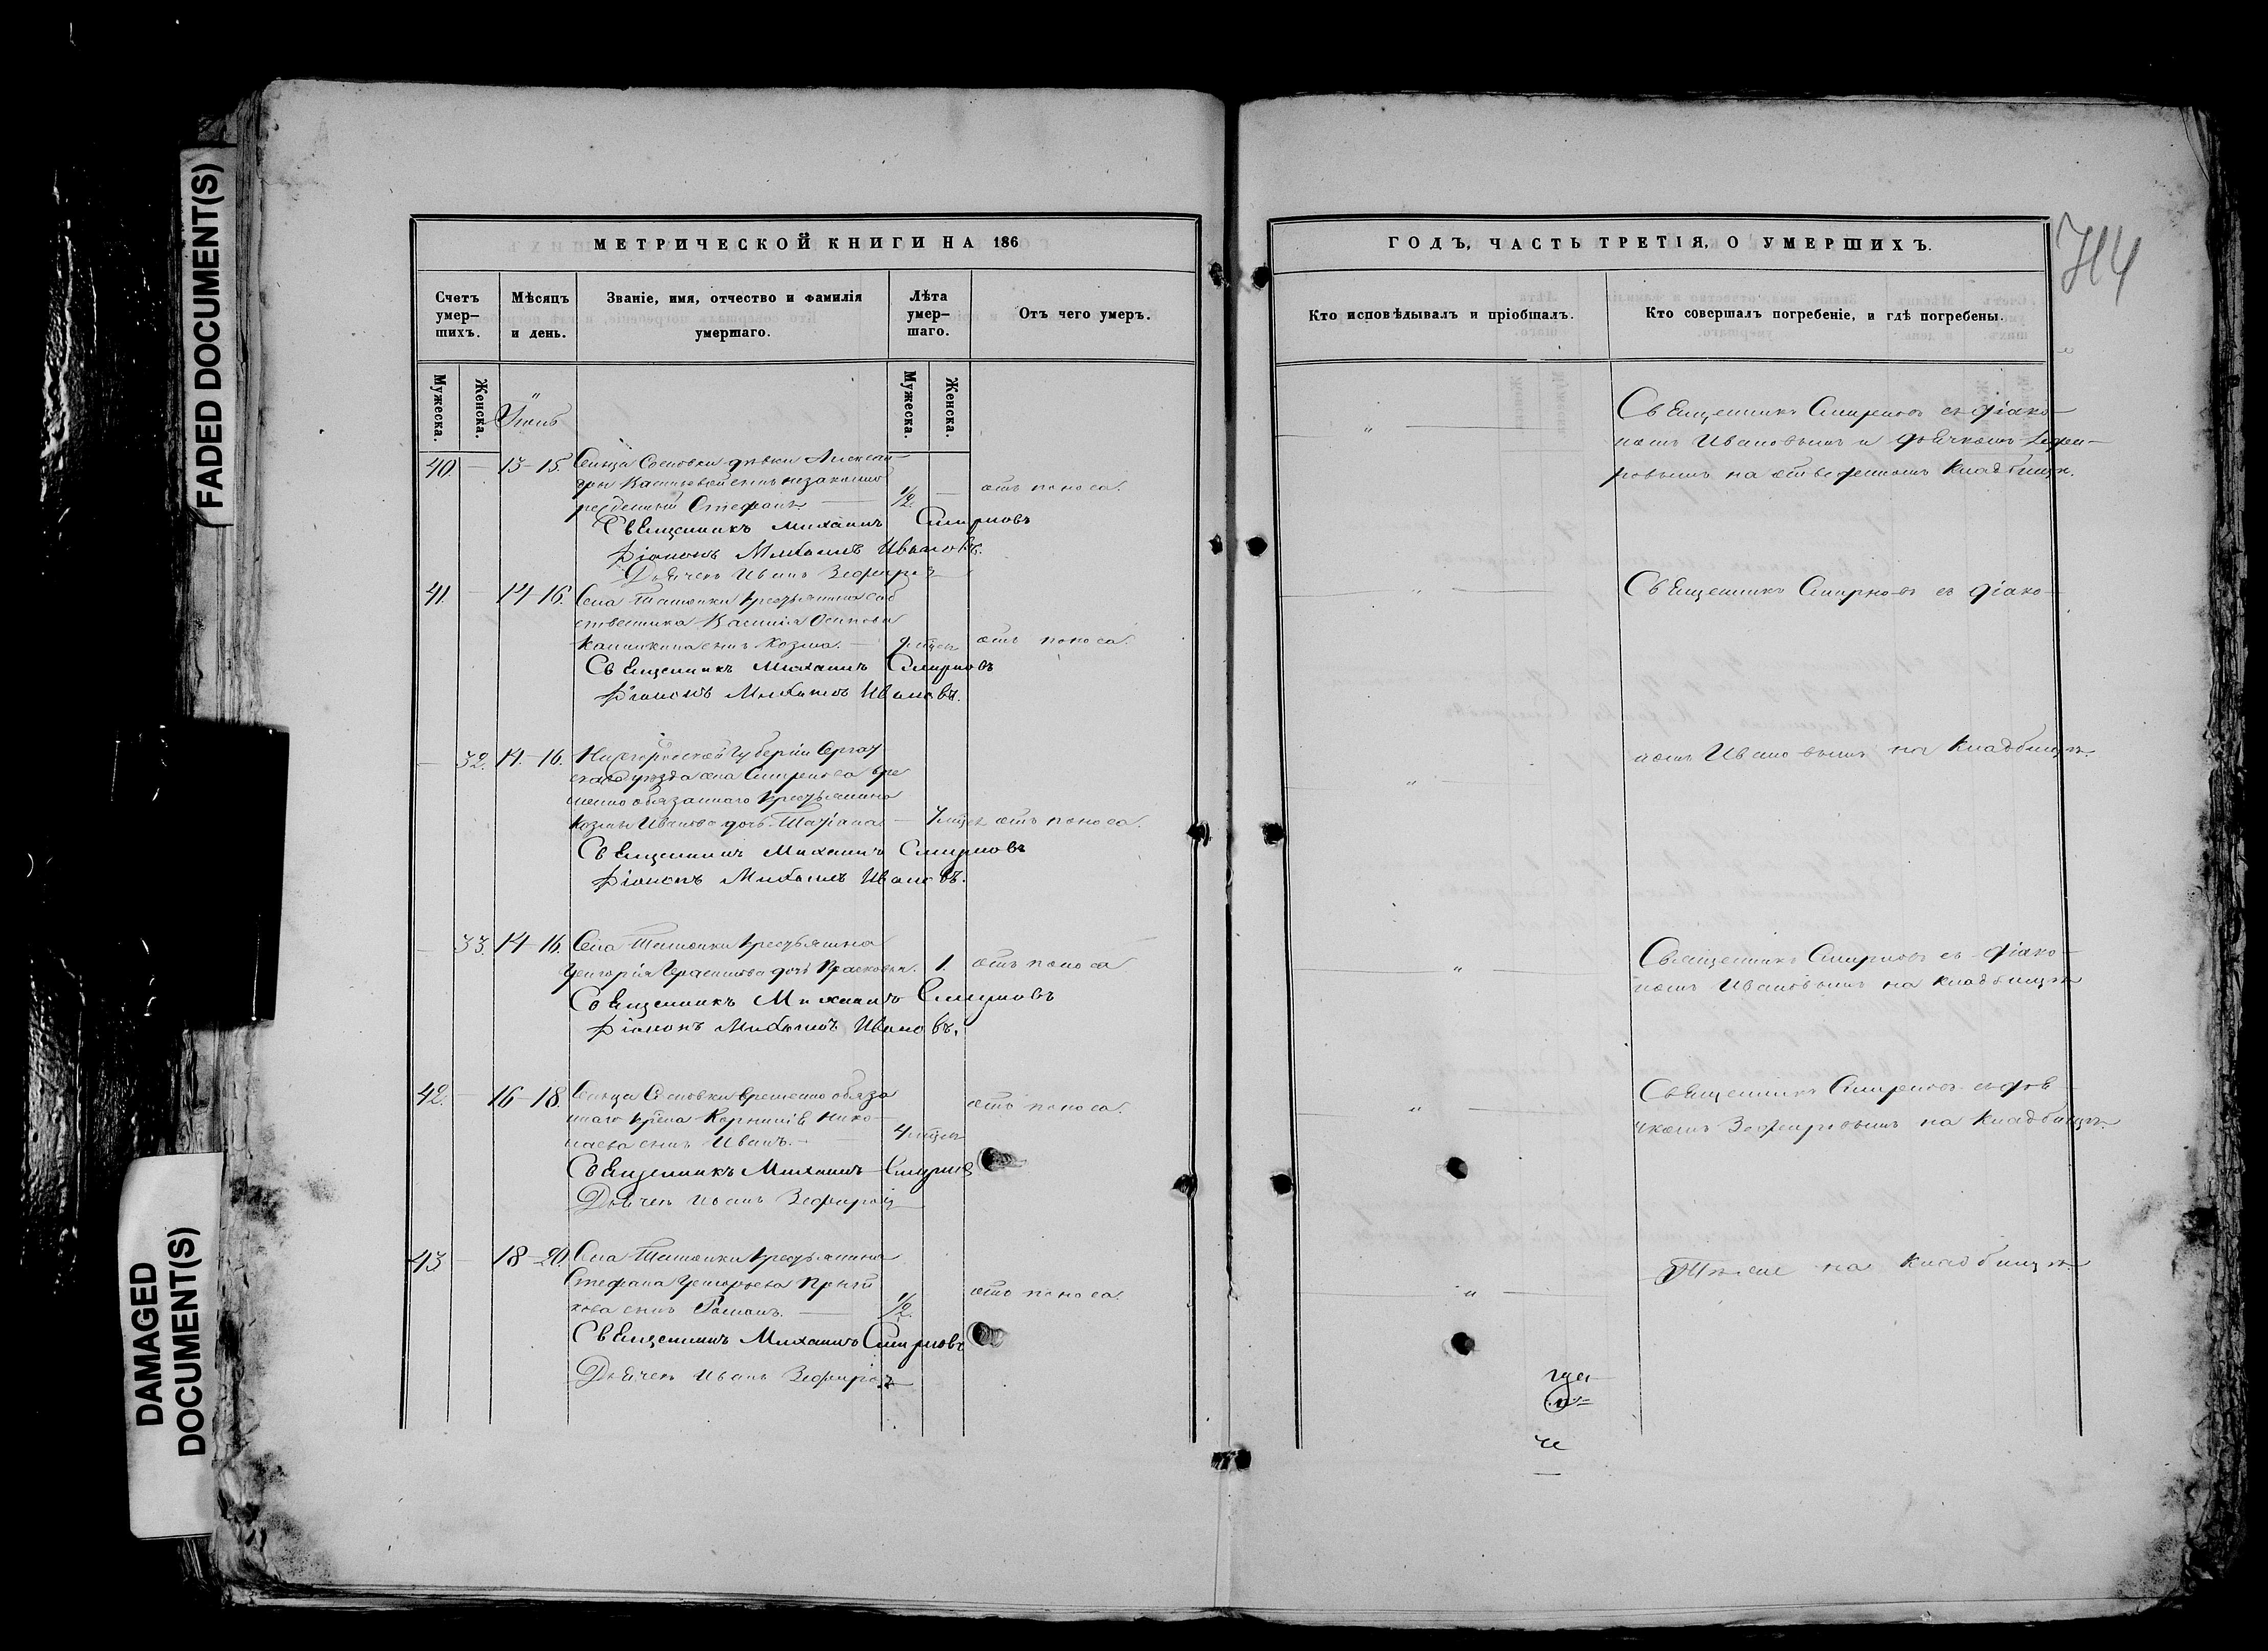 FADED DOCUMENT(S)
DAMAGED
DOCUMENT(S)
МЕТРИЧЕСКОЙ КНИГИ НА 186
Счетъ умер-шихъ.
Мѣсяцъ и день.
Званіе, имя, отчество и фамилія умершаго.
Лѣта умер-шаго.
Отъ чего умеръ.
Мужеска.
Женска.
Мужеска.
Женска.
40. — 13-15. Сельца Сосновки дѣвки Алексан-
дры Васильевой сынъ незаконно
рожденный Стефанъ — 1/2 — отъ поноса.
Священникъ Михаилъ Смирновъ
Діаконъ Михаилъ Ивановъ.
Дьячекъ Иванъ Зефировъ
41. — 14-16. Села крестьянина соб
ственника Василія Осипова
сынъ Козма. — отъ поноса.
Священникъ Михаилъ Смирновъ
Діаконъ Михаилъ Ивановъ.
— 32. 14-16. Нижегородской Губерніи Сергач
скаго уѣзда села вре
менно обязаннаго крестьянина
Козмы Иванова дочь Татіана — отъ поноса.
Священникъ Михаилъ Смирновъ
Діаконъ Михаилъ Ивановъ.
— 33. 14-16. Села крестьянина
Григорія Герасимова дочь Прасковья. 1. отъ поноса
Священникъ Михаилъ Смирновъ
Діаконъ Михаилъ Ивановъ.
42. — 16-18. Сельца Сосновки временно обяза
ннаго Корнилія Нико
лаева сынъ Иванъ. — отъ поноса.
Священникъ Михаилъ Смирновъ
Дьячекъ Иванъ Зефировъ
43 — 18-20. Села крестьянина
Стефана Григорьева
сынъ Романъ. — 1/2. отъ поноса.
Священникъ Михаилъ Смирновъ
Дьячекъ Иванъ Зефировъ
ГОДЪ, ЧАСТЬ ТРЕТІЯ, О УМЕРШИХЪ.
Кто исповѣдывалъ и пріобщалъ.
Кто совершалъ погребеніе, и гдѣ погребены.
Священникъ Смирновъ съ діако-
номъ Ивановымъ и дьячкомъ Зефи-
ровымъ на отведенномъ кладбищѣ.
Священникъ Смирновъ съ діако-
номъ Ивановымъ на кладбищѣ.
Священникъ Смирновъ съ діако-
номъ Ивановымъ на кладбищѣ
Священникъ Смирновъ съ дья-
чкомъ Зефировымъ на кладбищѣ.
Тѣже на кладбищѣ.